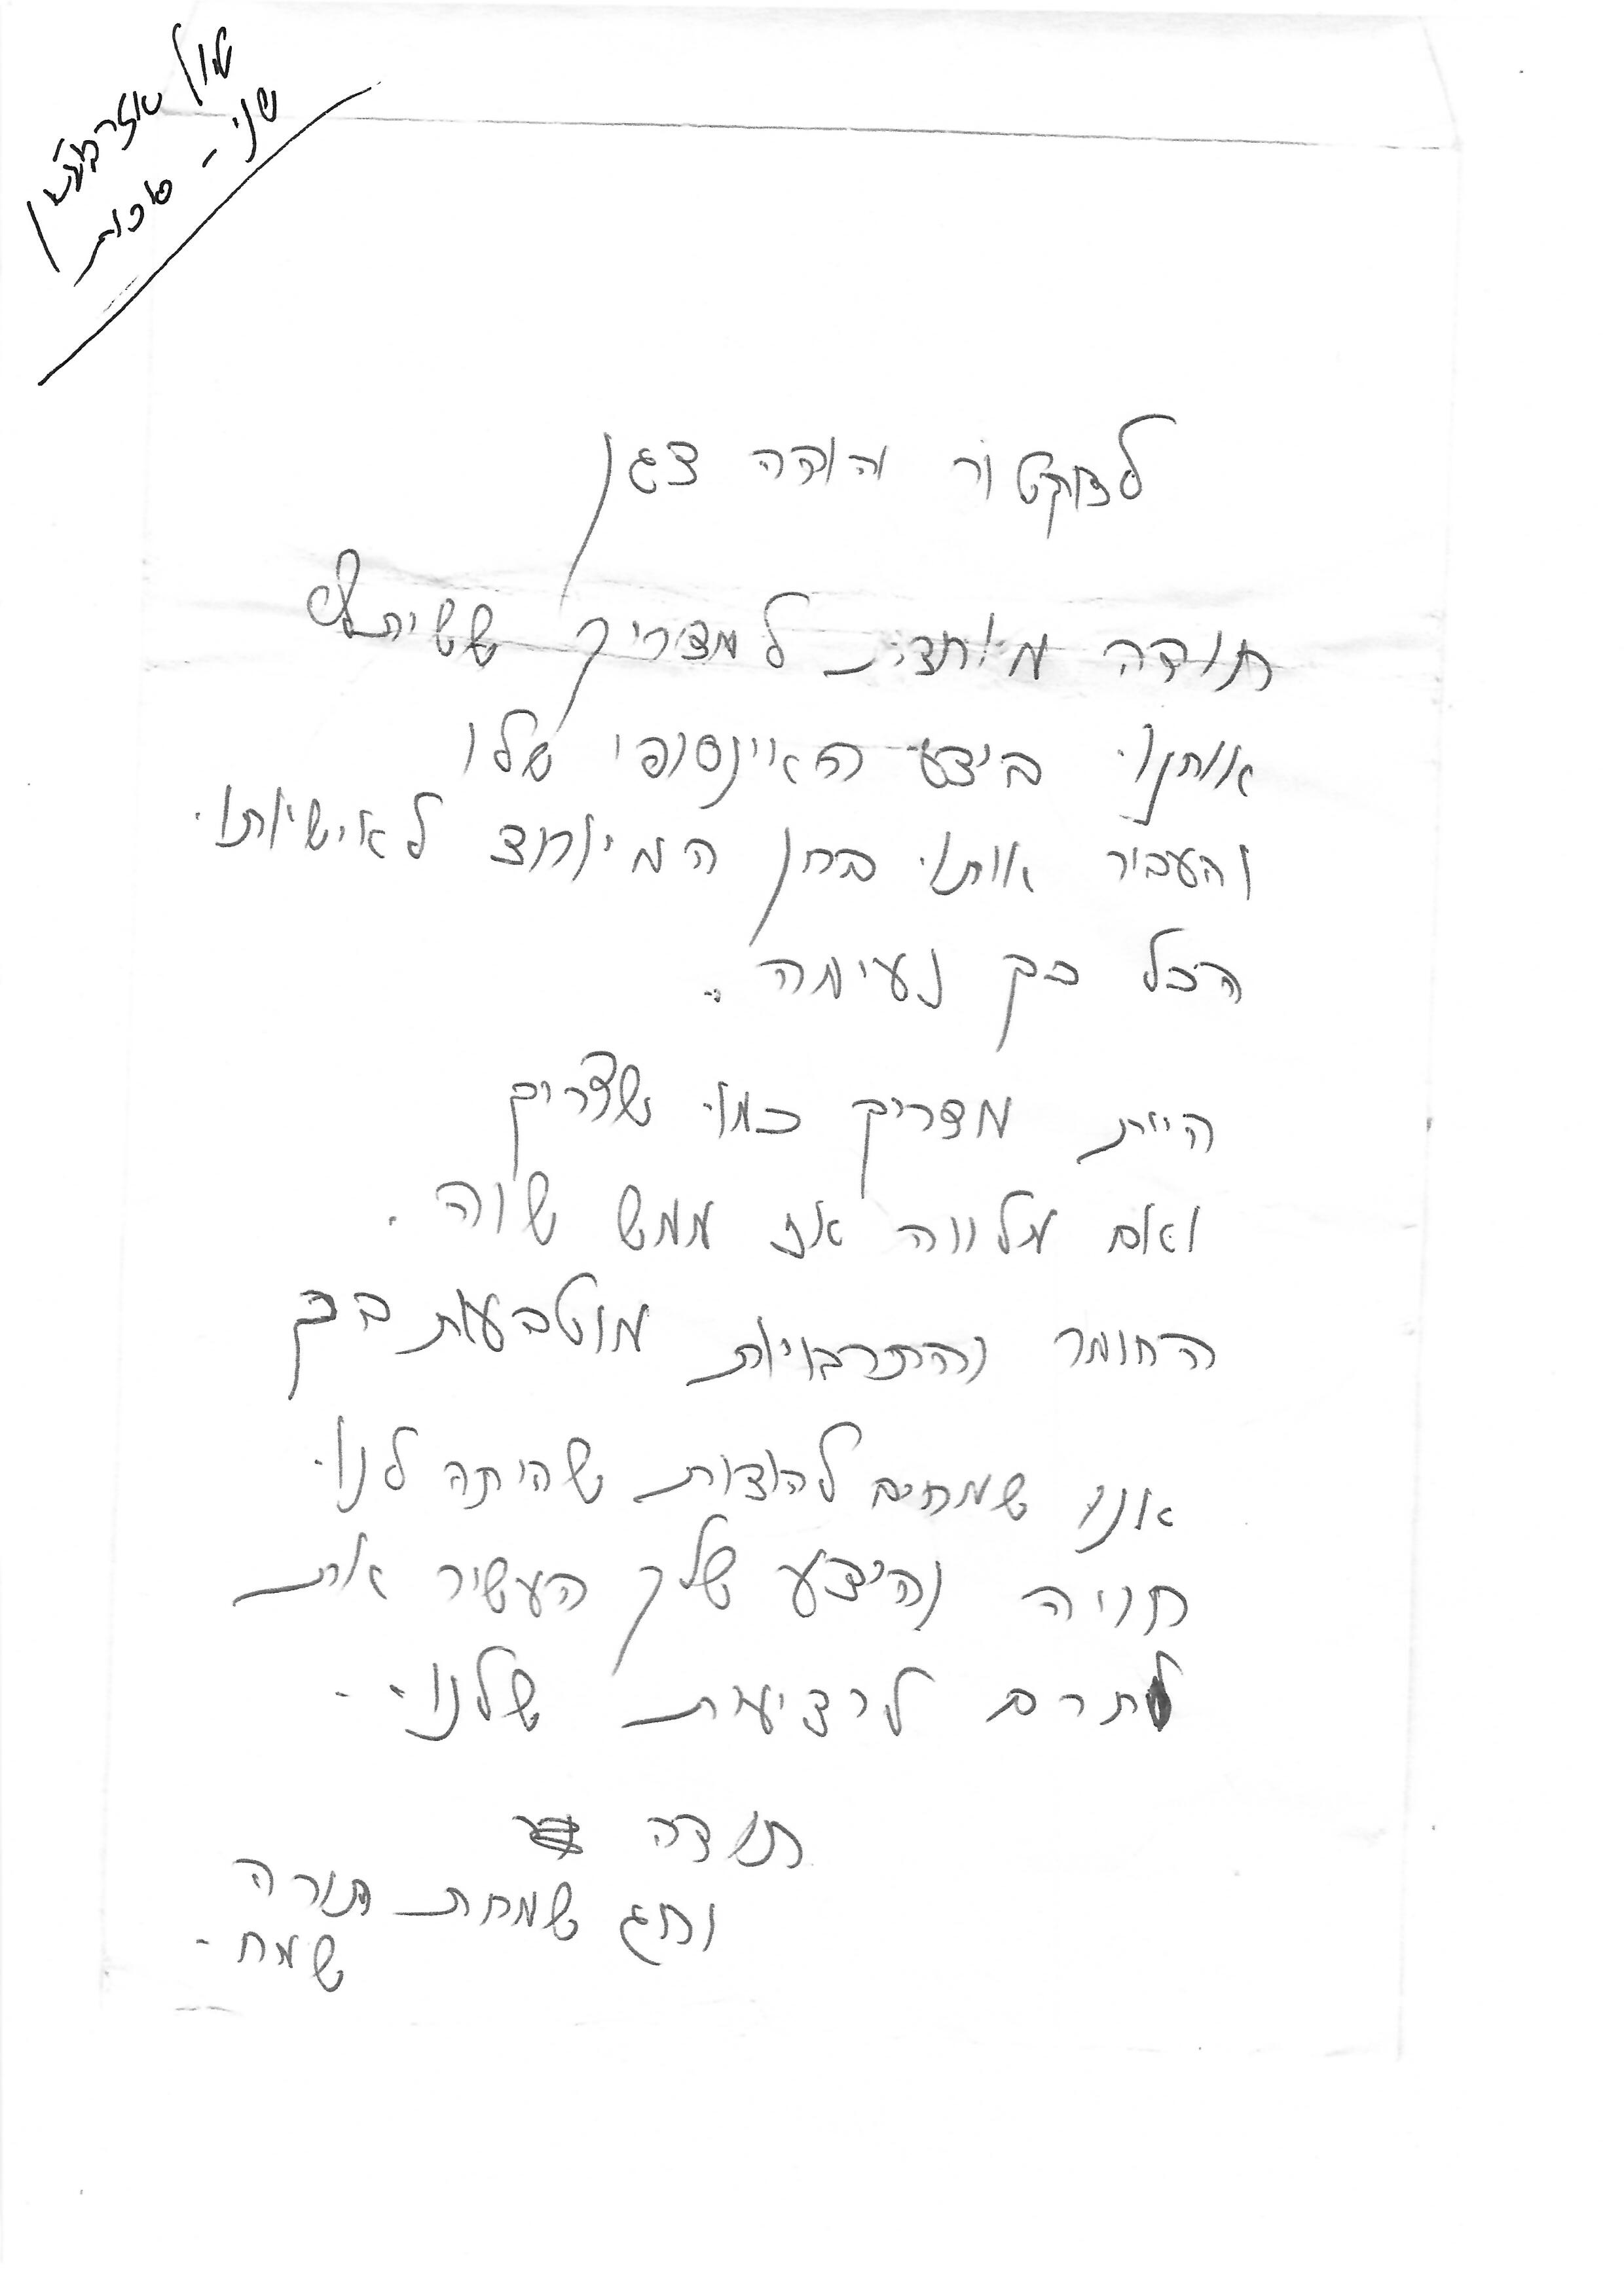 אזרבייג'ן
שני - סוכות
לדוקטור יהודה דגן
תודה מיוחדת למדריך ששיתף
אותנו בידע האינסופי שלו
והעביר אותו בחן המיוחד לאישיותו.
הכל כך נעימה.
היית מדריך כמו שצריך
ואם מלווה אז ממש שווה.
החומר והתרבויות מוטבעות בך
אנו שמחים להודות שהיתה לנו
חויה והידע שלך העשיר את
תרם לרציעות שלנו.
תודה
וחג שמחת תורה
שמח -